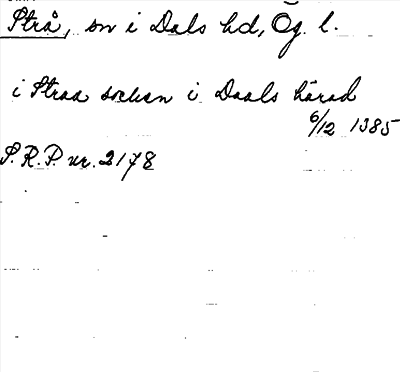 Strå, sn i Dals hd, Ög. l.
i Straa sochen i Daals härad
6/12 1385
S.R.P. nr. 2178